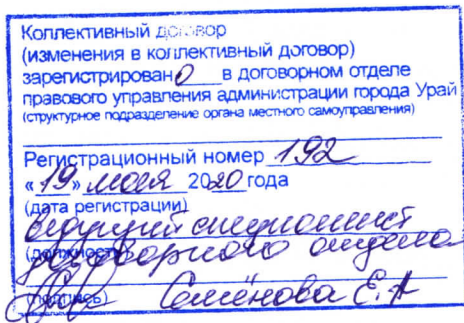 Коллективный договор
(изменения в коллективный договор)
зарегистрировано в договорном отделе
правового управления администрации города Урай
(структурное подразделение органа местного самоуправления)
Регистрационный номер 192
«19» мая 2020 года
(дата регистрации)
ведущий специалист
(должность)
договорного отдела
(подпись) Семёнова Е.А